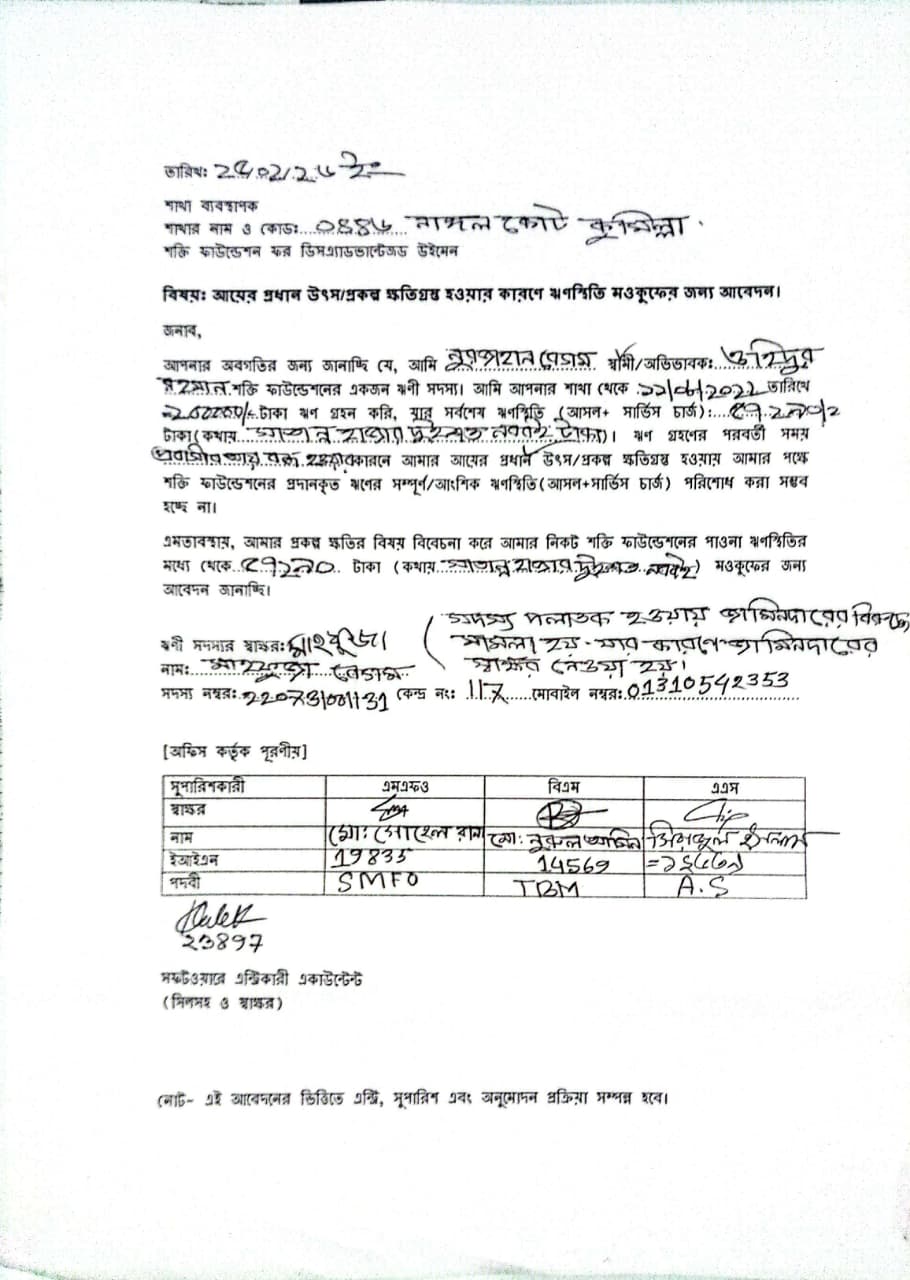 তারিখ:
শাখা ব্যবস্থাপক
শাখার নাম ও কোডঃ...0446... নাঙ্গলকোট কুমিল্লা.
শক্তি ফাউন্ডেশন ফর ডিসএ্যাডভান্টেজড উইমেন
বিষয়ঃ আয়ের প্রধান উৎস/প্রকল্প ক্ষতিগ্রস্ত হওয়ার কারণে ঋণস্থিতি মওকুফের জন্য আবেদন।
জনাব,
আপনার অবগতির জন্য জানাচ্ছি যে, আমি নুরজাহান বেগম স্বামী/অভিভাবক:..অহিদুর
রহমান.শক্তি ফাউন্ডেশনের একজন ঋণী সদস্য। আমি আপনার শাখা থেকে তারিখে
টাকা ঋণ গ্রহন করি, যার সর্বশেষ ঋণস্থিতি (আসল+ সার্ভিস চার্জ):...৫৭২৯০/=
টাকা(কথায়....সাতান্ন হাজার দুইশত নব্বই টাকা)। ঋণ গ্রহণের পরবর্তী সময়
বন্ধ হওয়ার কারনে আমার আয়ের প্রধান উৎস/প্রকল্প ক্ষতিগ্রস্ত হওয়ায় আমার পক্ষে
শক্তি ফাউন্ডেশনের প্রদানকৃত ঋণের সম্পূর্ণ/আংশিক ঋণস্থিতি(আসল+সার্ভিস চার্জ) পরিশোধ করা সম্ভব
হচ্ছে না।
এমতাবস্থায়, আমার প্রকল্প ক্ষতির বিষয় বিবেচনা করে আমার নিকট শক্তি ফাউন্ডেশনের পাওনা ঋণস্থিতির
মধ্যে থেকে..৫৭২৯০.. টাকা (কথায়..সাতান্ন হাজার দুইশত নব্বই) মওকুফের জন্য
আবেদন জানাচ্ছি।
(সদস্য পলাতক হওয়ায় জামিনদারের বিরুদ্ধে
ঋণী সদস্যর স্বাক্ষর: মাহফুজা মামলা হয়. যার কারণে জামিনদারের
নাম: মাহফুজা বেগম স্বাক্ষর নেওয়া হয়।
সদস্য নম্বর: কেন্দ্র নং: 117 মোবাইল নম্বর: 01310542353
[অফিস কর্তৃক পূরণীয়]
সুপারিশকারী এমএফও বিএম এএস
স্বাক্ষর
নাম মো: সোহেল রানা মো: নুরুল আমিন সিরাজুল ইসলাম
ইআইএন 19835 14569
পদবী SMFO TBM A.S
23897
সফটওয়ারে এন্ট্রিকারী একাউন্টেন্ট
(সিলসহ ও স্বাক্ষর)
নোট- এই আবেদনের ভিত্তিতে এন্ট্রি, সুপারিশ এবং অনুমোদন প্রক্রিয়া সম্পন্ন হবে।